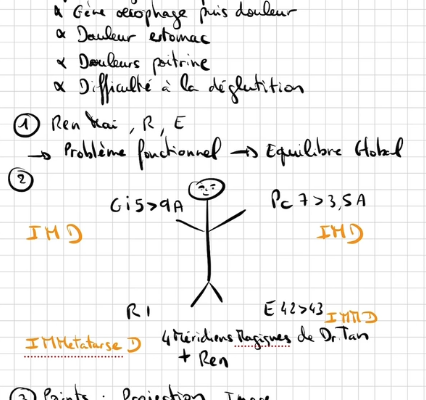 ∝ Gêne œsophage puis douleur
∝ Douleur estomac
∝ Douleurs poitrine
∝ Difficulté à la déglutition
① Ren Mai, R, E
→ Problème fonctionnel → Equilibre Global
②
Gi5>9A Pc7>3,5A
IMD IMD
R1 E42>43 IMMD
IMMetatarse D 4 Méridiens Magiques de Dr. Tan
+ Ren
③ Points : Projection Image